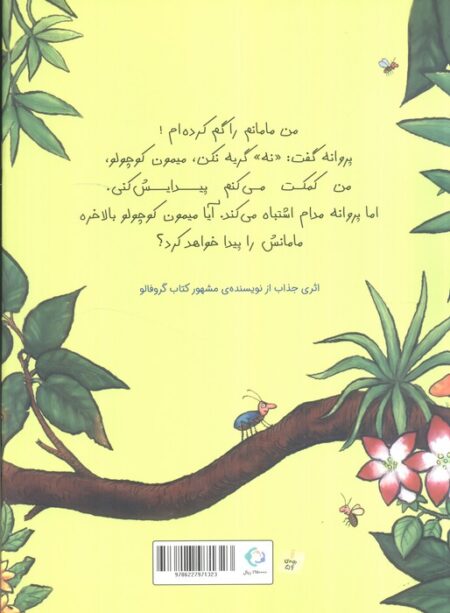 من مامانم را گم کرده‌ام !
پروانه گفت: «نه» گریه نکن، میمون کوچولو،
من کمکت می‌کنم پیدایش‌کنی.
اما پروانه مدام اشتباه می‌کند. آیا میمون کوچولو بالاخره
مامانش را پیدا خواهد کرد؟
اثری جذاب از نویسنده‌ی مشهور کتاب گروفالو
9786227971323